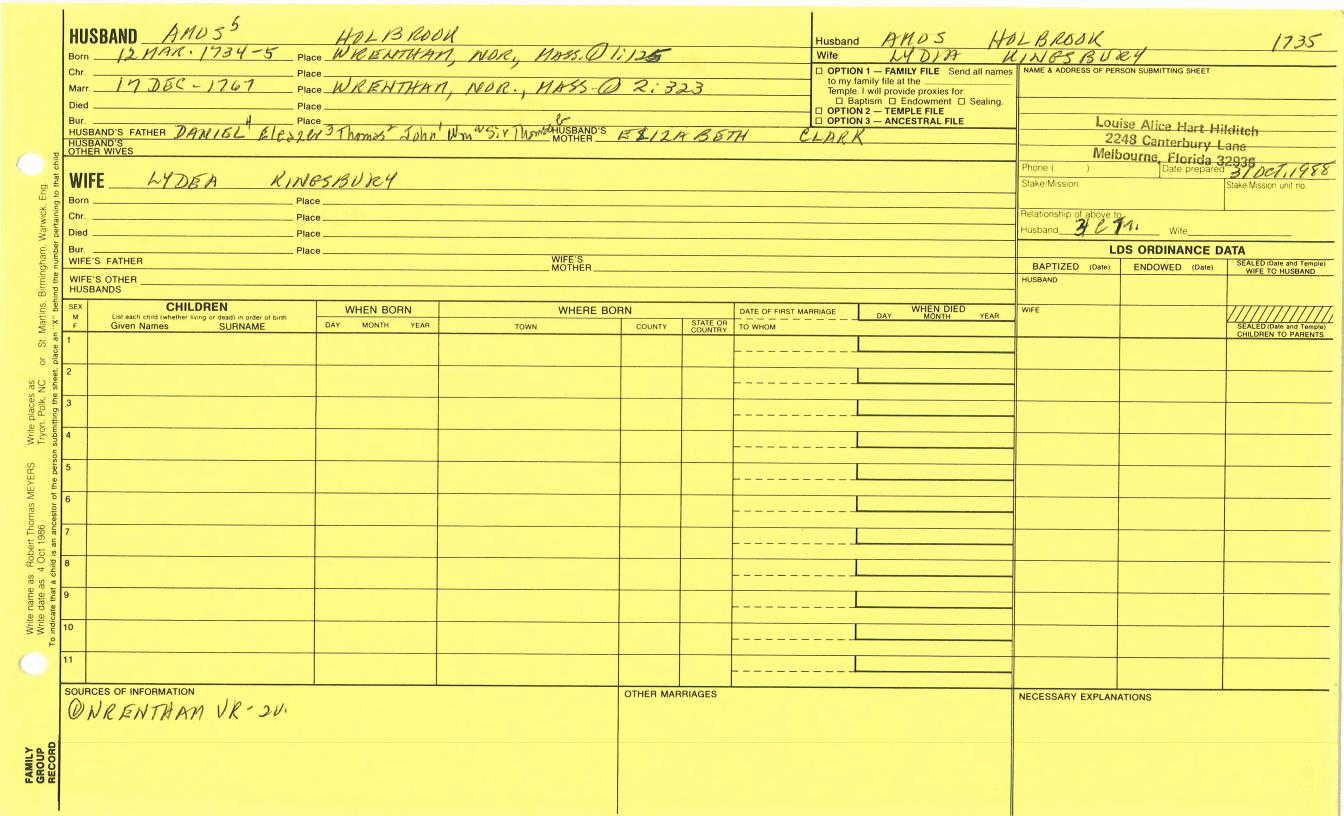 HUSBAND AMOS⁵ HOLBROOK
Born 12 MAR. 1734-5 Place WRENTHAM, NOR, MASS. ① 1:125
Chr. Place
Marr. 17 DEC - 1767 Place WRENTHAM, NOR., MASS. ① 2:323
Died Place
Bur. Place
HUSBAND'S FATHER DANIEL⁴ Eleazer³ Thomas² John¹ Wm Sir Thomas HUSBAND'S MOTHER ELIZABETH CLARK
HUSBAND'S OTHER WIVES
Husband AMOS HOLBROOK 1735
Wife LYDIA KINGSBURY
☐ OPTION 1 — FAMILY FILE Send all names
to my family file at the
Temple. I will provide proxies for
☐ Baptism ☐ Endowment ☐ Sealing.
☐ OPTION 2 — TEMPLE FILE
☐ OPTION 3 — ANCESTRAL FILE
NAME & ADDRESS OF PERSON SUBMITTING SHEET
Louise Alice Hart Hilditch
2248 Canterbury Lane
Melbourne, Florida 32935
Phone ( ) Date prepared 31 OCT, 1988
Stake/Mission Stake/Mission unit no.
Relationship of above to
Husband 3 C Wife
WIFE LYDEA KINGSBURY
Born Place
Chr. Place
Died Place
Bur. Place
WIFE'S FATHER WIFE'S MOTHER
WIFE'S OTHER HUSBANDS
LDS ORDINANCE DATA
BAPTIZED (Date) ENDOWED (Date) SEALED (Date and Temple) WIFE TO HUSBAND
HUSBAND
WIFE
SEALED (Date and Temple) CHILDREN TO PARENTS
SEX M F
CHILDREN
List each child (whether living or dead) in order of birth
Given Names SURNAME
WHEN BORN
DAY MONTH YEAR
WHERE BORN
TOWN COUNTY STATE OR COUNTRY
DATE OF FIRST MARRIAGE
TO WHOM
WHEN DIED
DAY MONTH YEAR
1
2
3
4
5
6
7
8
9
10
11
SOURCES OF INFORMATION
① WRENTHAM VR - 2V.
OTHER MARRIAGES
NECESSARY EXPLANATIONS
Write name as Robert Thomas MEYERS Write places as Tryon, Polk, NC or St. Martins, Birmingham, Warwick, Eng.
Write date as 4 Oct 1986
To indicate that a child is an ancestor of the person submitting the sheet, place an "X" behind the number pertaining to that child
FAMILY GROUP RECORD